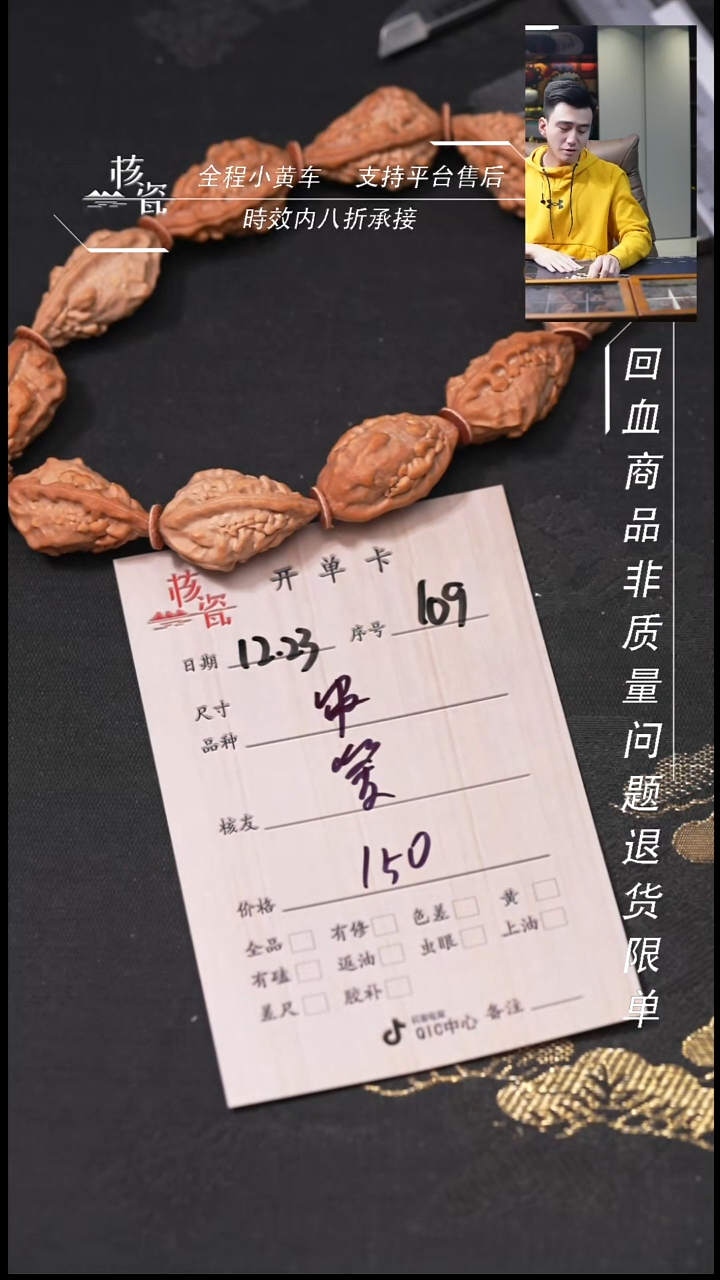 核瓷
全程小黄车 支持平台售后
時效内八折承接
回血商品非质量问题退货限单
核瓷
开单卡
日期 12.23 序号 109
尺寸
品种
核友
价格 150
全品 有修 色差 黄
有磕 返油 虫眼 上油
差尺 胶补
QIC中心 备注